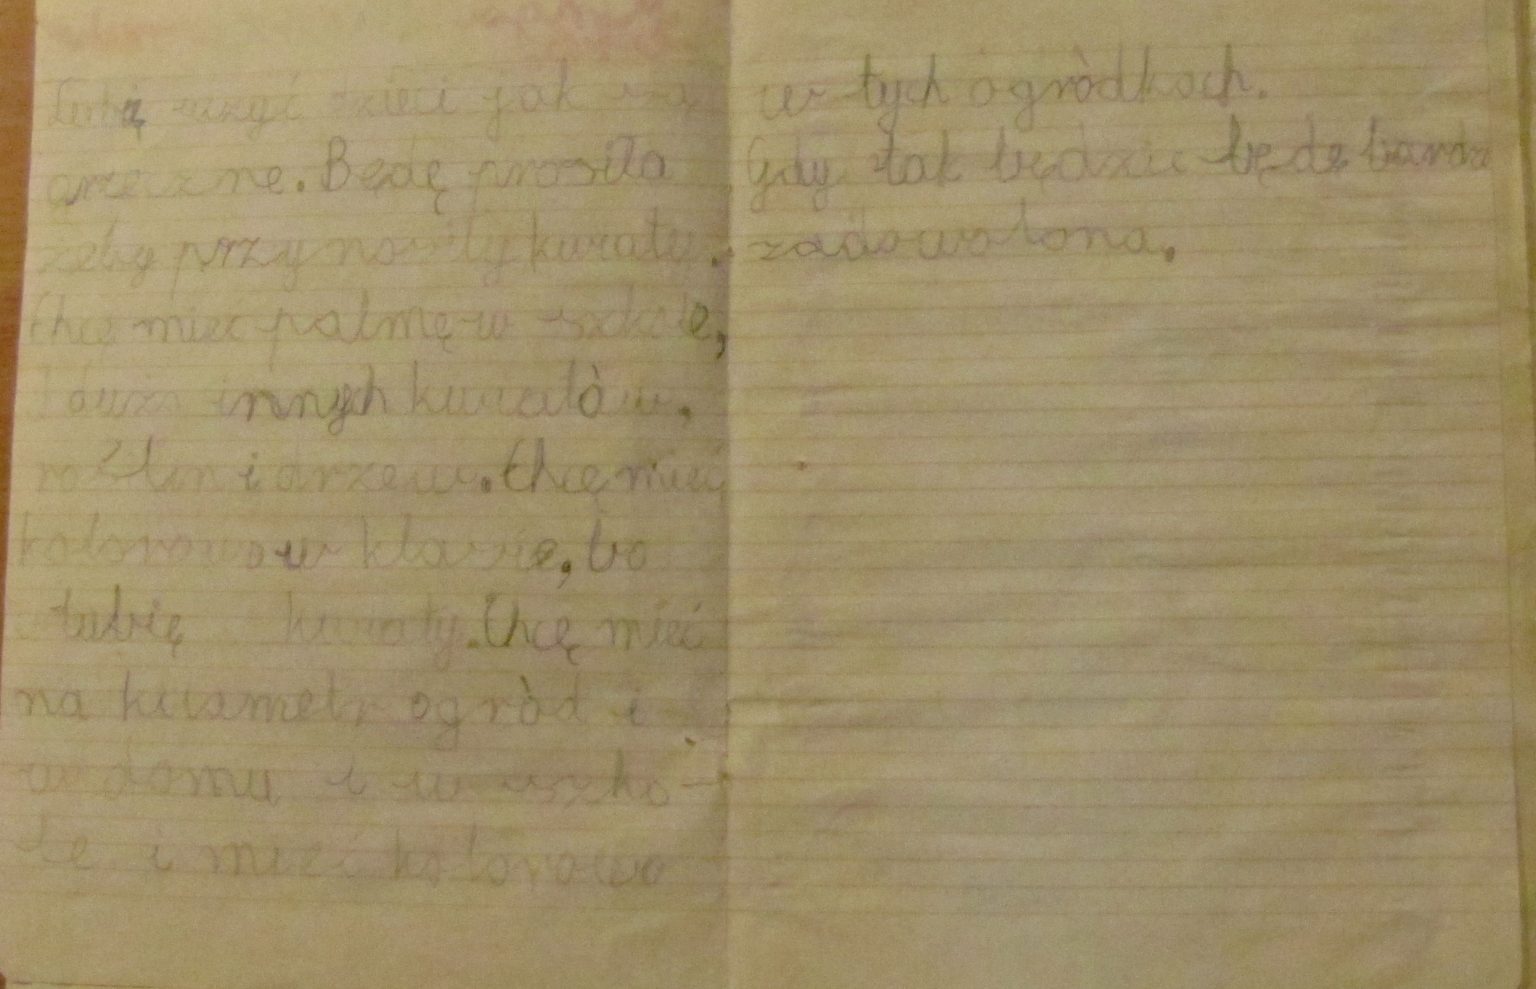 Lubię uczyć dzieci jak są
grzeczne. Będę prosiła
żeby przynosiły kwiaty.
Chcę mieć palmę w szkole,
I dużo innych kwiatów,
roślin i drzew. Chcę mieć
kolorowo w klasie, bo
lubię kwiaty. Chcę mieć
na ogród i
w domu i w szko-
le i mieć kolorowo
w tych ogródkach.
Gdy tak będzie będę bardzo
zadowolona.